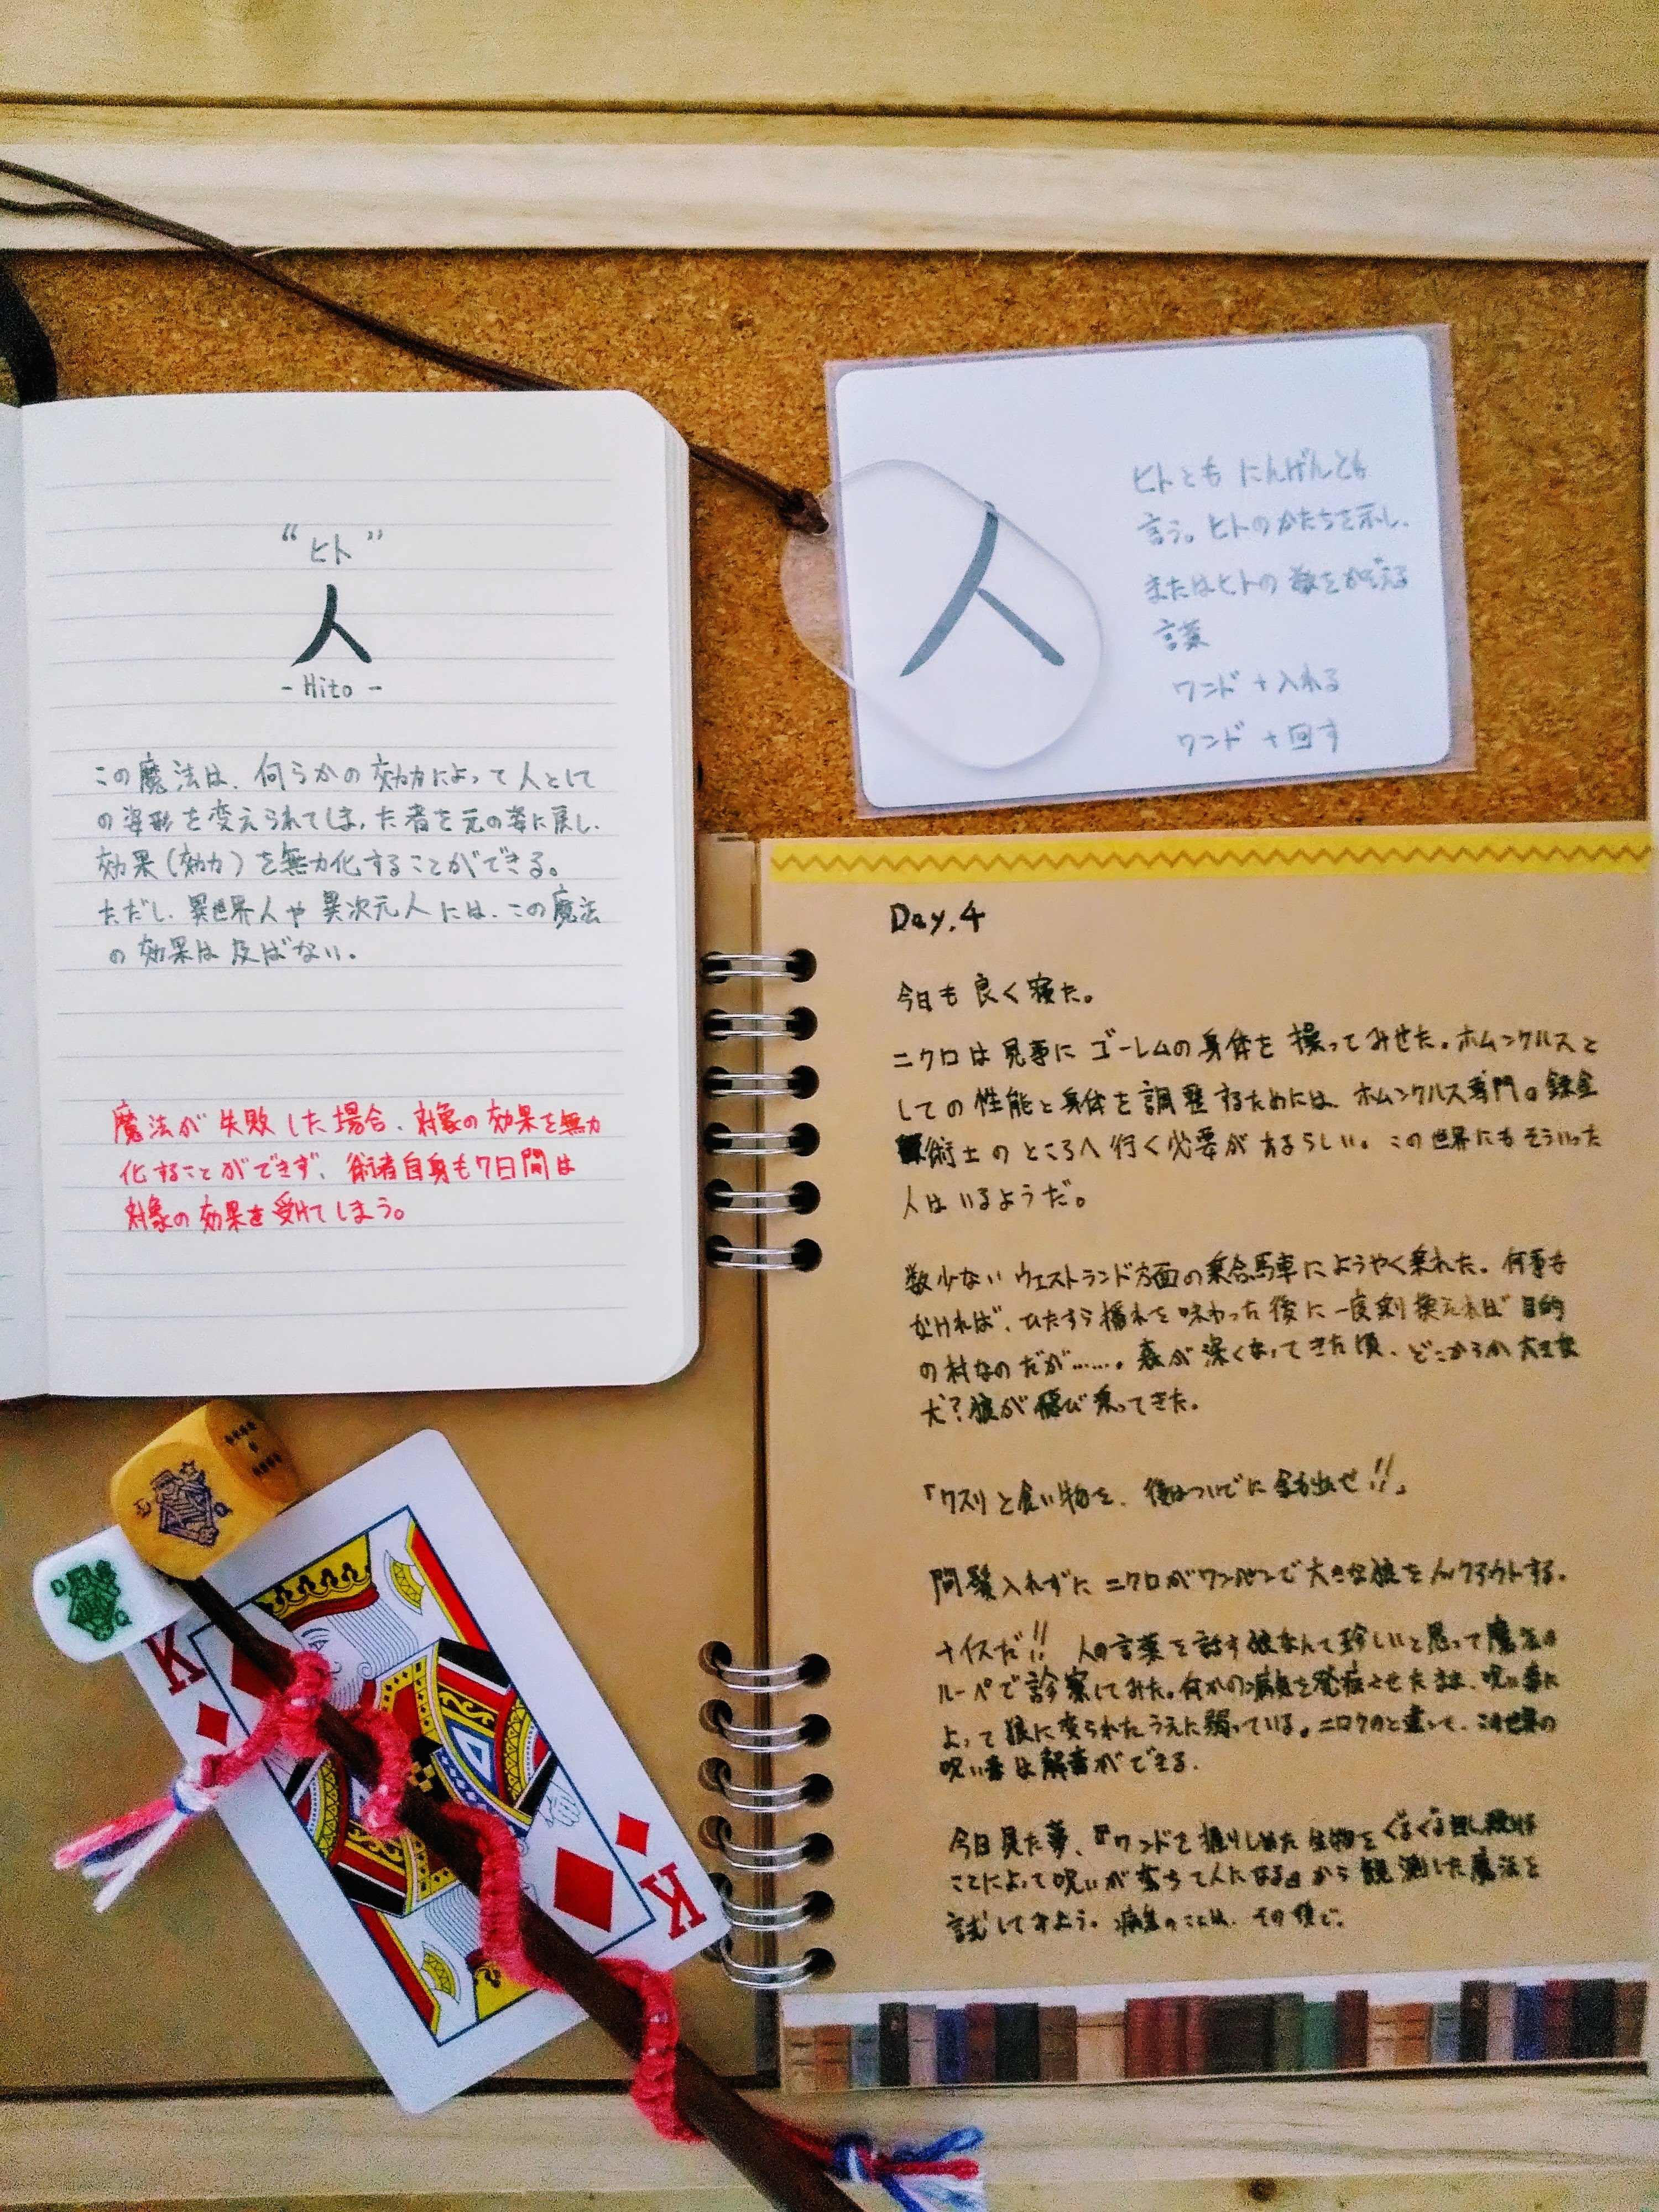 “ヒト”
人
- Hito -
この魔法は、何らかの効力によって人として
の姿形を変えられてしまった者を元の姿に戻し、
効果(効力)を無力化することができる。
ただし、異世界人や異次元人には、この魔法
の効果は及ばない。
魔法が失敗した場合、対象の効果を無力
化することができず、術者自身も7日間は
対象の効果を受けてしまう。
人
ヒトとも にんげんとも
言う。ヒトのかたちを示し、
またはヒトの数をかぞえる
言葉
ワンド + 入れる
ワンド + 回す
Day.4
今日も良く寝た。
ニクロは見事にゴーレムの身体を操ってみせた。ホムンクルスと
しての性能と身体を調整するためには、ホムンクルス専門の錬金
術士のところへ行く必要があるらしい。この世界にもそういった
人はいるようだ。
数少ないウェストランド方面の乗合馬車にようやく乗れた。何事も
なければ、ひたすら揺れを味わった後に一度乗り換えれば目的
の村なのだが……。森が深くなってきた頃、どこからか大きな
犬?狼が飛び乗ってきた。
「クスリと食い物を、後はついでに金も出せ!!」
間髪入れずにニクロがワンパンで大きな狼をノックアウトする。
ナイスだ!! 人の言葉を話す狼なんて珍しいと思って魔法の
ルーペで診察してみた。何かの病気を発症させたまま、呪い毒に
よって狼に変られたうえに弱っている。ニロクのと違って、この世界の
呪い毒は解毒ができる。
今日見た夢、『ワンドを握りしめた生物をぐるぐる回し続ける
ことによって呪いが落ちて人になる』から観測した魔法を
試してみよう。病気のことは、その後で。
K
K
D
Q
Q